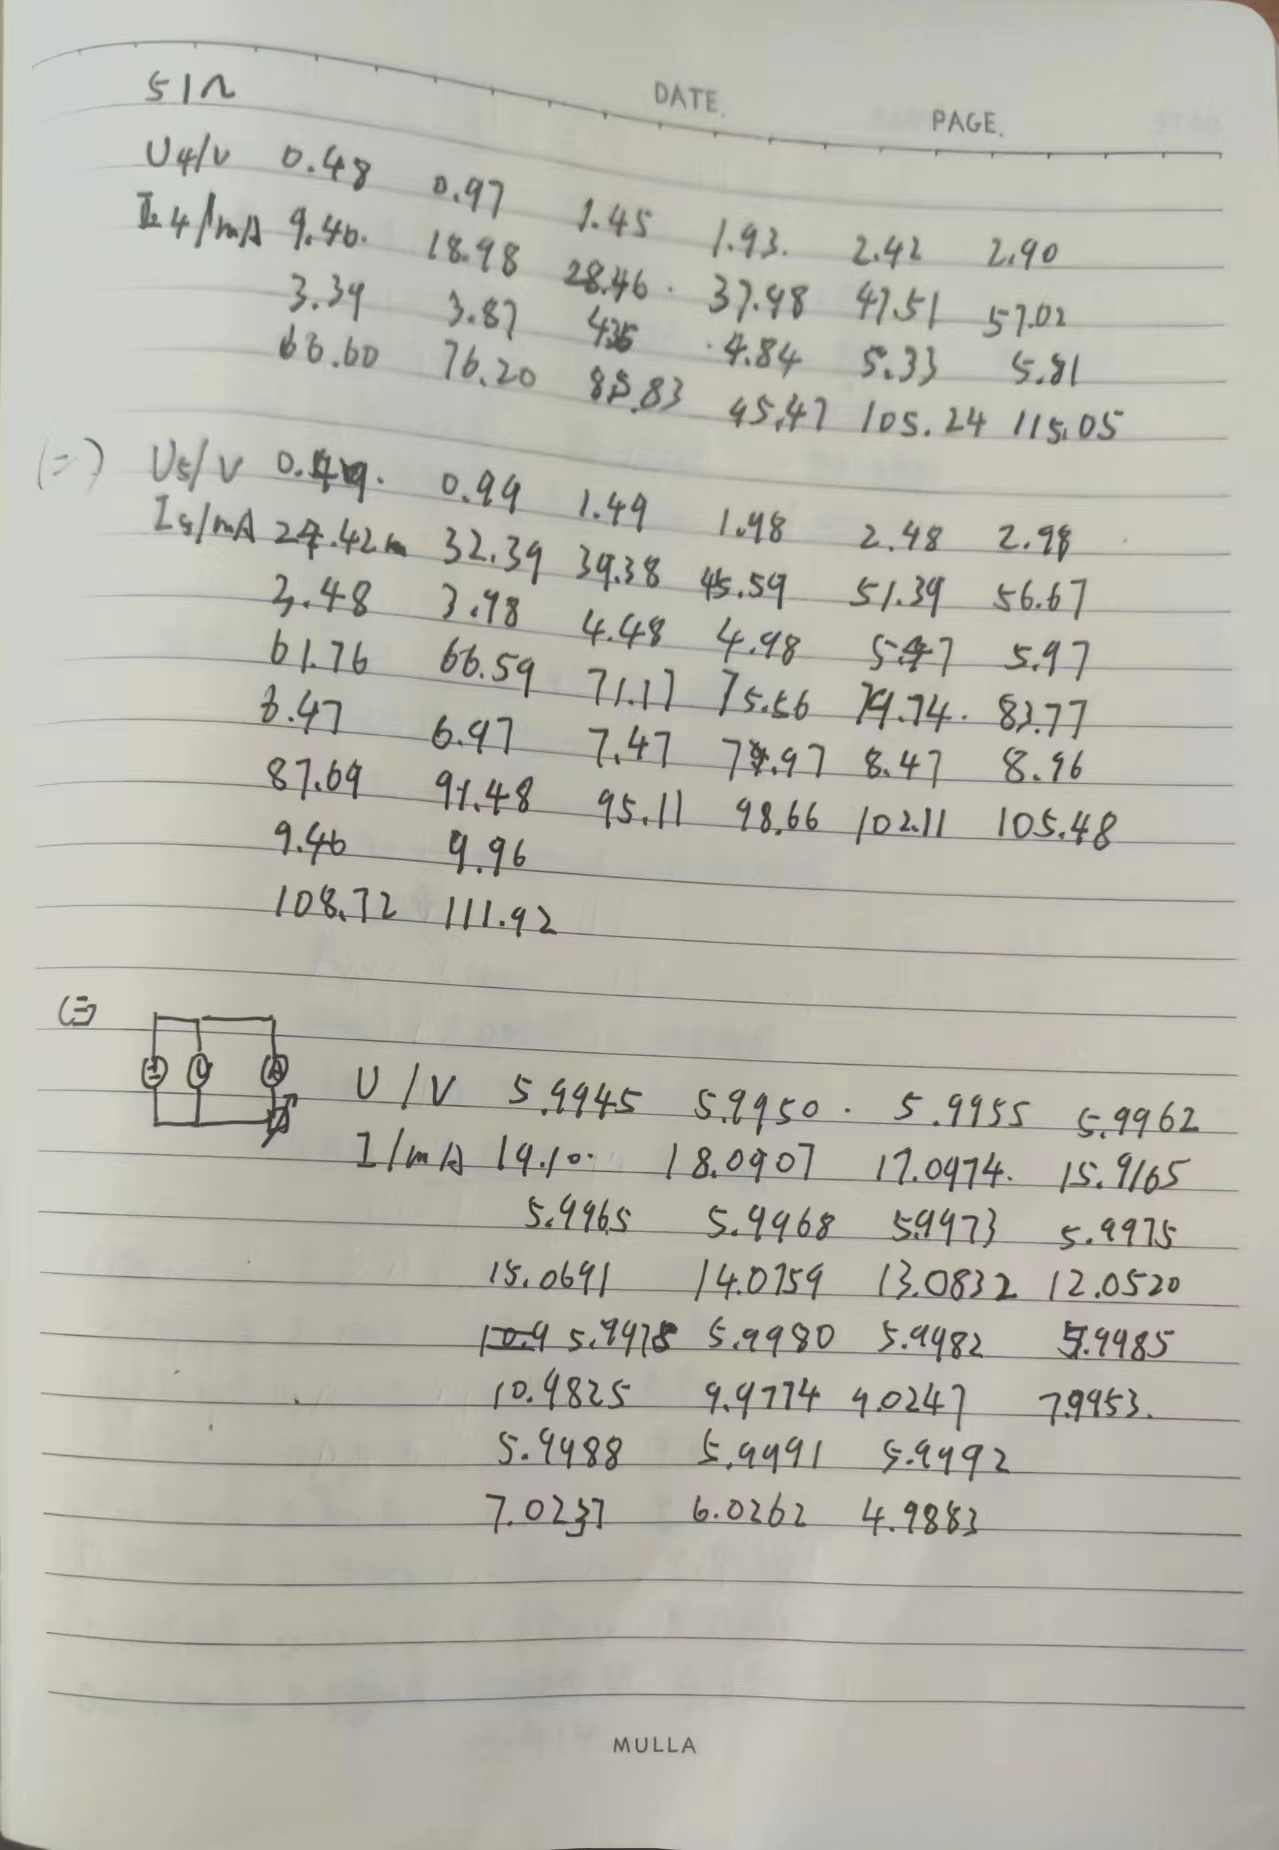 DATE.
PAGE.
51Ω
U4/V 0.48 0.97 1.45 1.93. 2.42 2.90
I4/mA 9.40. 18.98 28.46. 37.98 47.51 57.02
3.39 3.87 4.36 4.84 5.33 5.81
66.60 76.20 85.83 95.47 105.24 115.05
(二) U5/V 0.49. 0.99 1.49 1.98 2.48 2.98
I5/mA 24.42m 32.39 39.38 45.59 51.39 56.67
3.48 3.98 4.48 4.98 5.47 5.97
61.76 66.59 71.17 75.56 79.74. 83.77
6.47 6.97 7.47 7.97 8.47 8.96
87.69 91.48 95.11 98.66 102.11 105.48
9.46 9.96
108.72 111.92
(三)
V A
U/V 5.9945 5.9950. 5.9955 5.9962
I/mA 19.10. 18.0907 17.0974. 15.9165
5.9965 5.9968 5.9973 5.9975
15.0691 14.0759 13.0832 12.0520
10.9 5.9978 5.9980 5.9982 5.9985
10.9825 9.9774 9.0247 7.9953.
5.9988 5.9991 5.9992
7.0237 6.0262 4.9883
MULLA